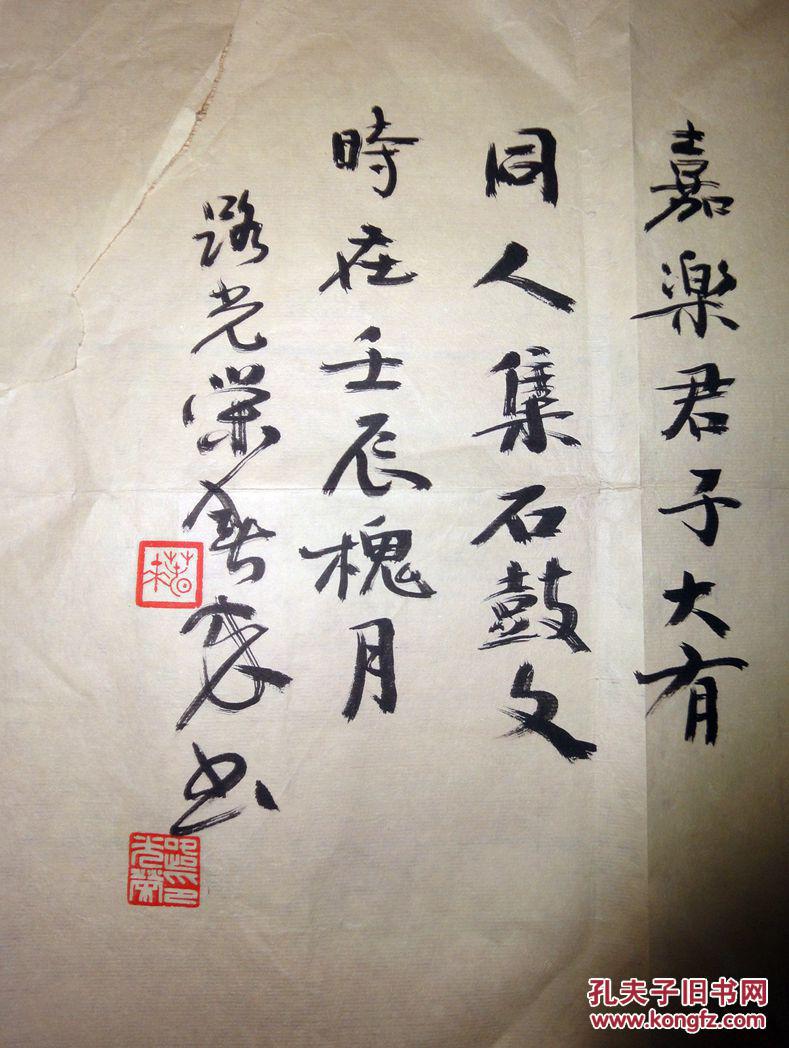 嘉樂君子大有
同人集石鼓文
時在壬辰槐月
路光榮書
路光榮印
孔夫子旧书网
www.kongfz.com